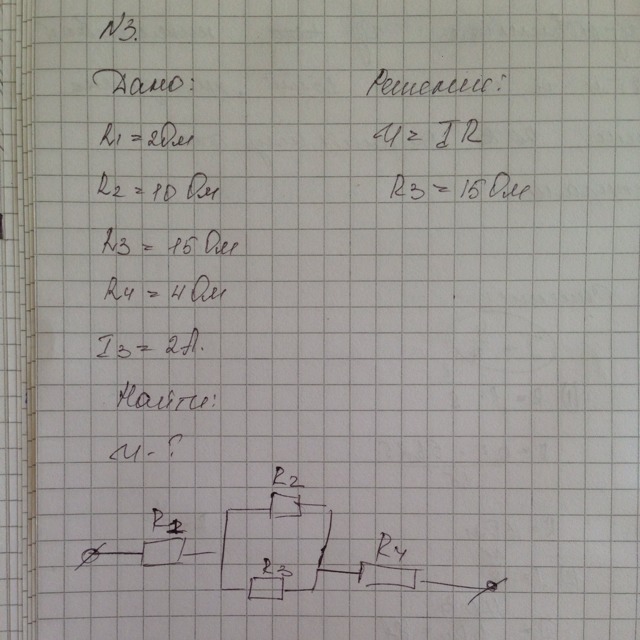 N3.
Дано:
R1 = 2 Ом
R2 = 10 Ом
R3 = 15 Ом
R4 = 4 Ом
I3 = 2А.
Найти:
U - ?
Решение:
U = IR
R3 = 15 Ом
R2
R1
R3
R4